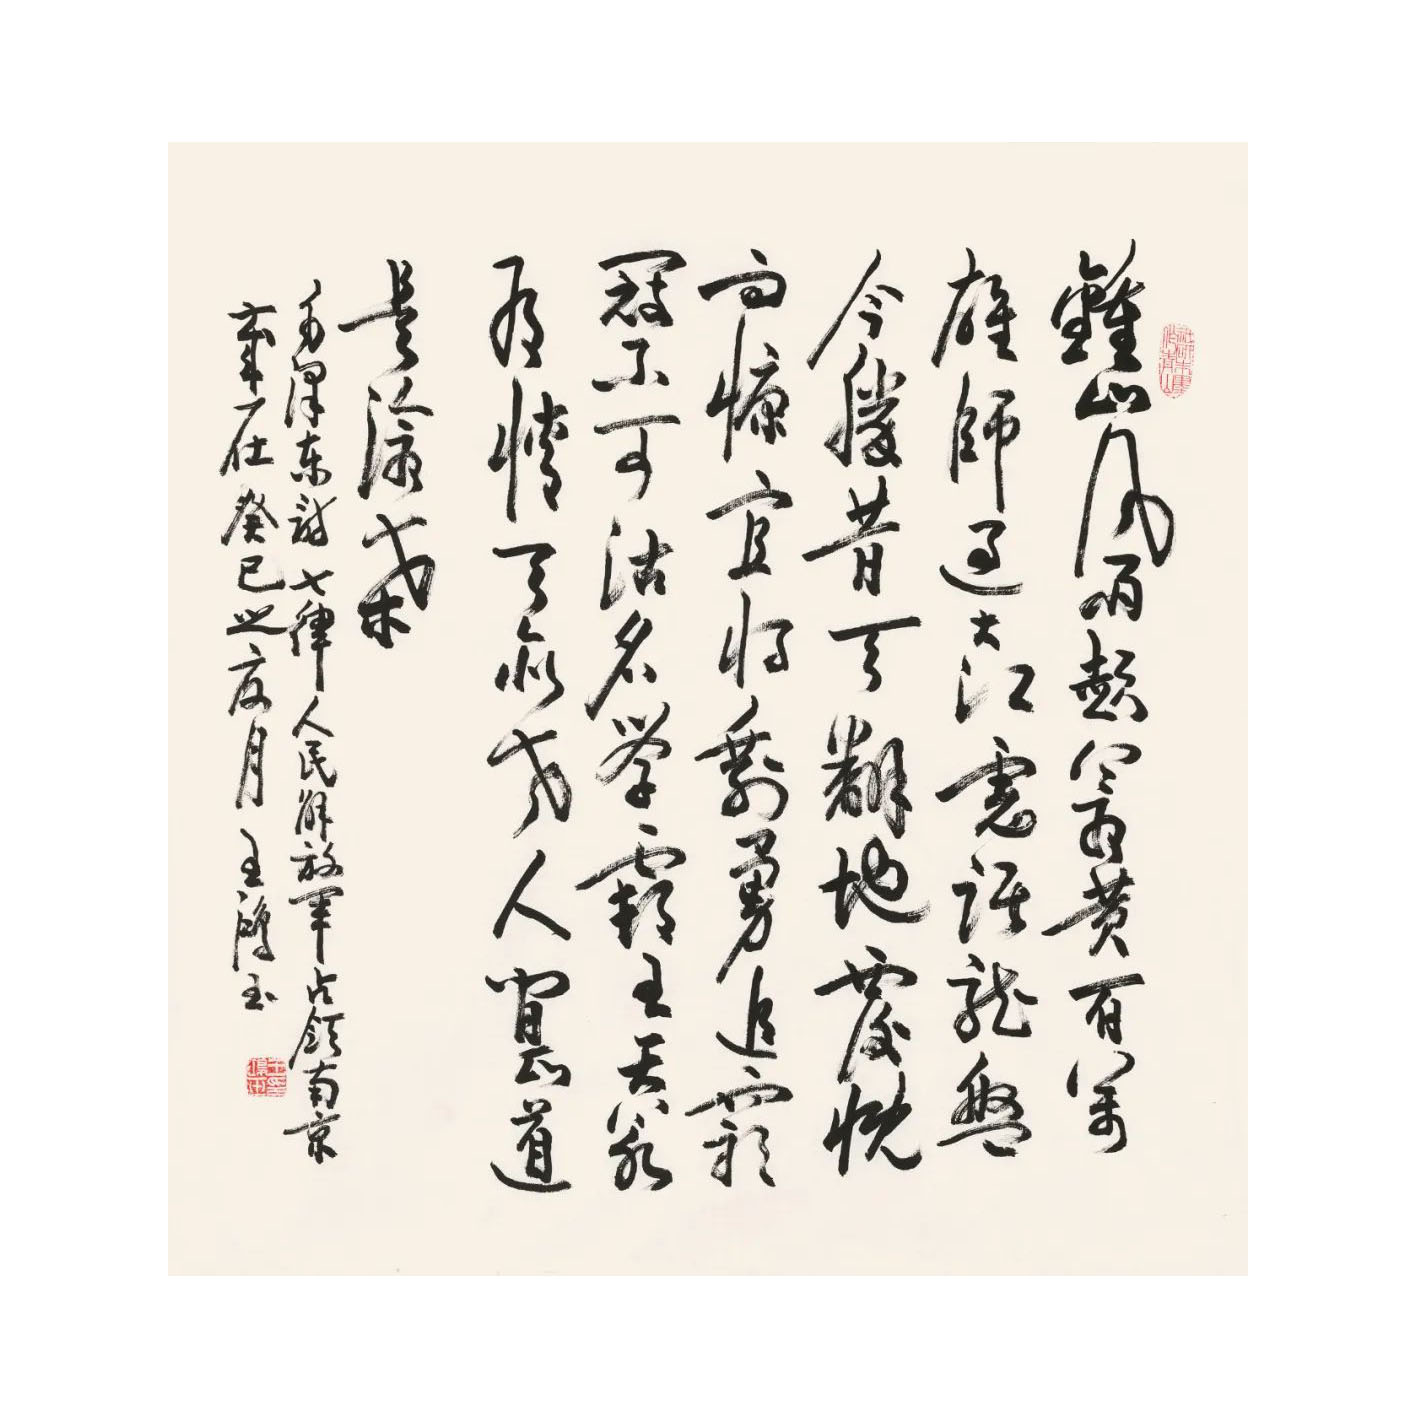 鍾山風雨起蒼黃百萬
雄師過大江虎踞龍盤
今勝昔天翻地覆慨
而慷宜將剩勇追窮
寇不可沽名學霸王天若
有情天亦老人間正道
是滄桑
毛澤東詩七律人民解放軍占領南京
歲在癸巳之夏月王鴻玉